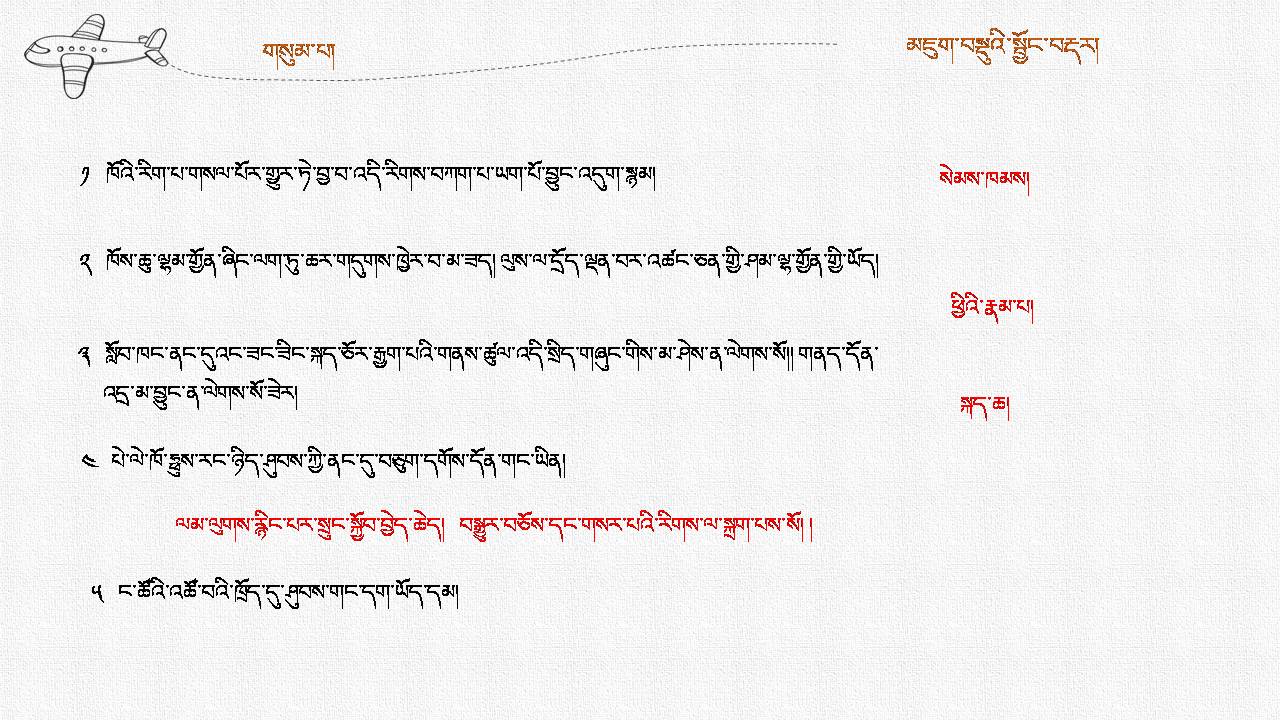 གསུམ་པ།
མདུག་བསྡུའི་སྦྱོང་བརྡར།
༡ ཁོའི་རིག་པ་གསལ་པོར་གྱུར་ཏེ་བྱ་བ་འདི་རིགས་བཀག་པ་ཡག་པོ་བྱུང་འདུག་སྙམ།
སེམས་ཁམས།
༢ ཁོས་ཆུ་ལྷམ་གྱོན་ཞིང་ལག་ཏུ་ཆར་གདུགས་ཁྱེར་བ་མ་ཟད། ལུས་ལ་དྲོད་ལྡན་བར་འཚང་ཅན་གྱི་ཤམ་ལྷ་གྱོན་གྱི་ཡོད།
ཕྱིའི་རྣམ་པ།
༣ སློབ་ཁང་ནང་དུའང་ཟང་ཟིང་སྐད་ཅོར་རྒྱག་པའི་གནས་ཚུལ་འདི་སྲིད་གཞུང་གིས་མ་ཤེས་ན་ལེགས་སོ།། གནད་དོན་
འདྲ་མ་བྱུང་ན་ལེགས་སོ་ཟེར།
སྐད་ཆ།
༤ པེ་ལེ་ཁོ་ཧྥུས་རང་ཉིད་ཤུབས་ཀྱི་ནང་དུ་བཅུག་དགོས་དོན་གང་ཡིན།
ལམ་ལུགས་རྙིང་པར་སྲུང་སྐྱོབ་བྱེད་ཆེད། བསྒྱུར་བཅོས་དང་གསར་པའི་རིགས་ལ་སྐྲག་པས་སོ། །
༥ ང་ཚོའི་འཚོ་བའི་ཁྲོད་དུ་ཤུབས་གང་དག་ཡོད་དམ།